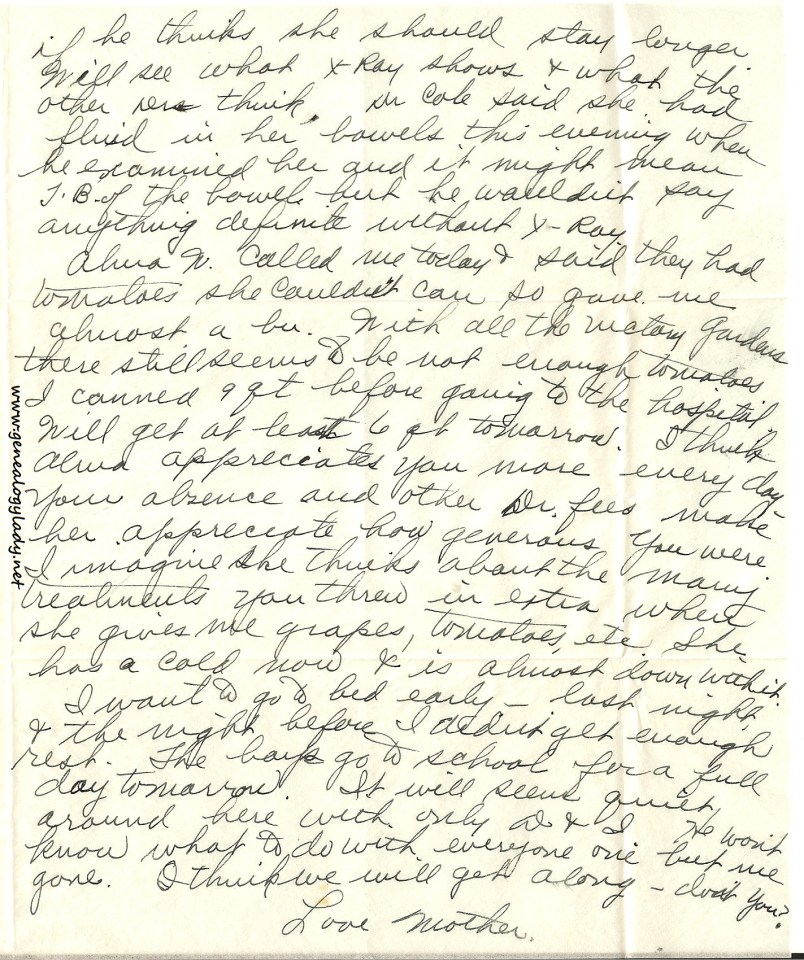 if he thinks she should stay longer
Will see what X Ray shows & what the
other Drs think. Dr Cole said she had
fluid in her bowels this evening when
he examined her and it might mean
T.B. of the bowel but he wouldn't say
anything definite without X-Ray.
Alma W. called me today & said they had
tomatoes she couldn't can so gave me
almost a bu. With all the Victory Gardens
there still seems to be not enough tomatoes
I canned 9 qt before going to the hospital.
Will get at least 6 qt tomorrow. I think
Alma appreciates you more every day
Your absence and other Dr. fees make
her appreciate how generous you were
I imagine she thinks about the many
treatments you threw in extra when
she gives me grapes, tomatoes, etc. She
has a cold now & is almost down with it.
I want to go to bed early - last night
& the night before I didn't get enough
rest. The boys go to school for a full
day tomorrow. It will seem quiet
around here with only D & I. He won't
know what to do with everyone one but me
gone. I think we will get along - don't you?
Love Mother.
www.genealogylady.net